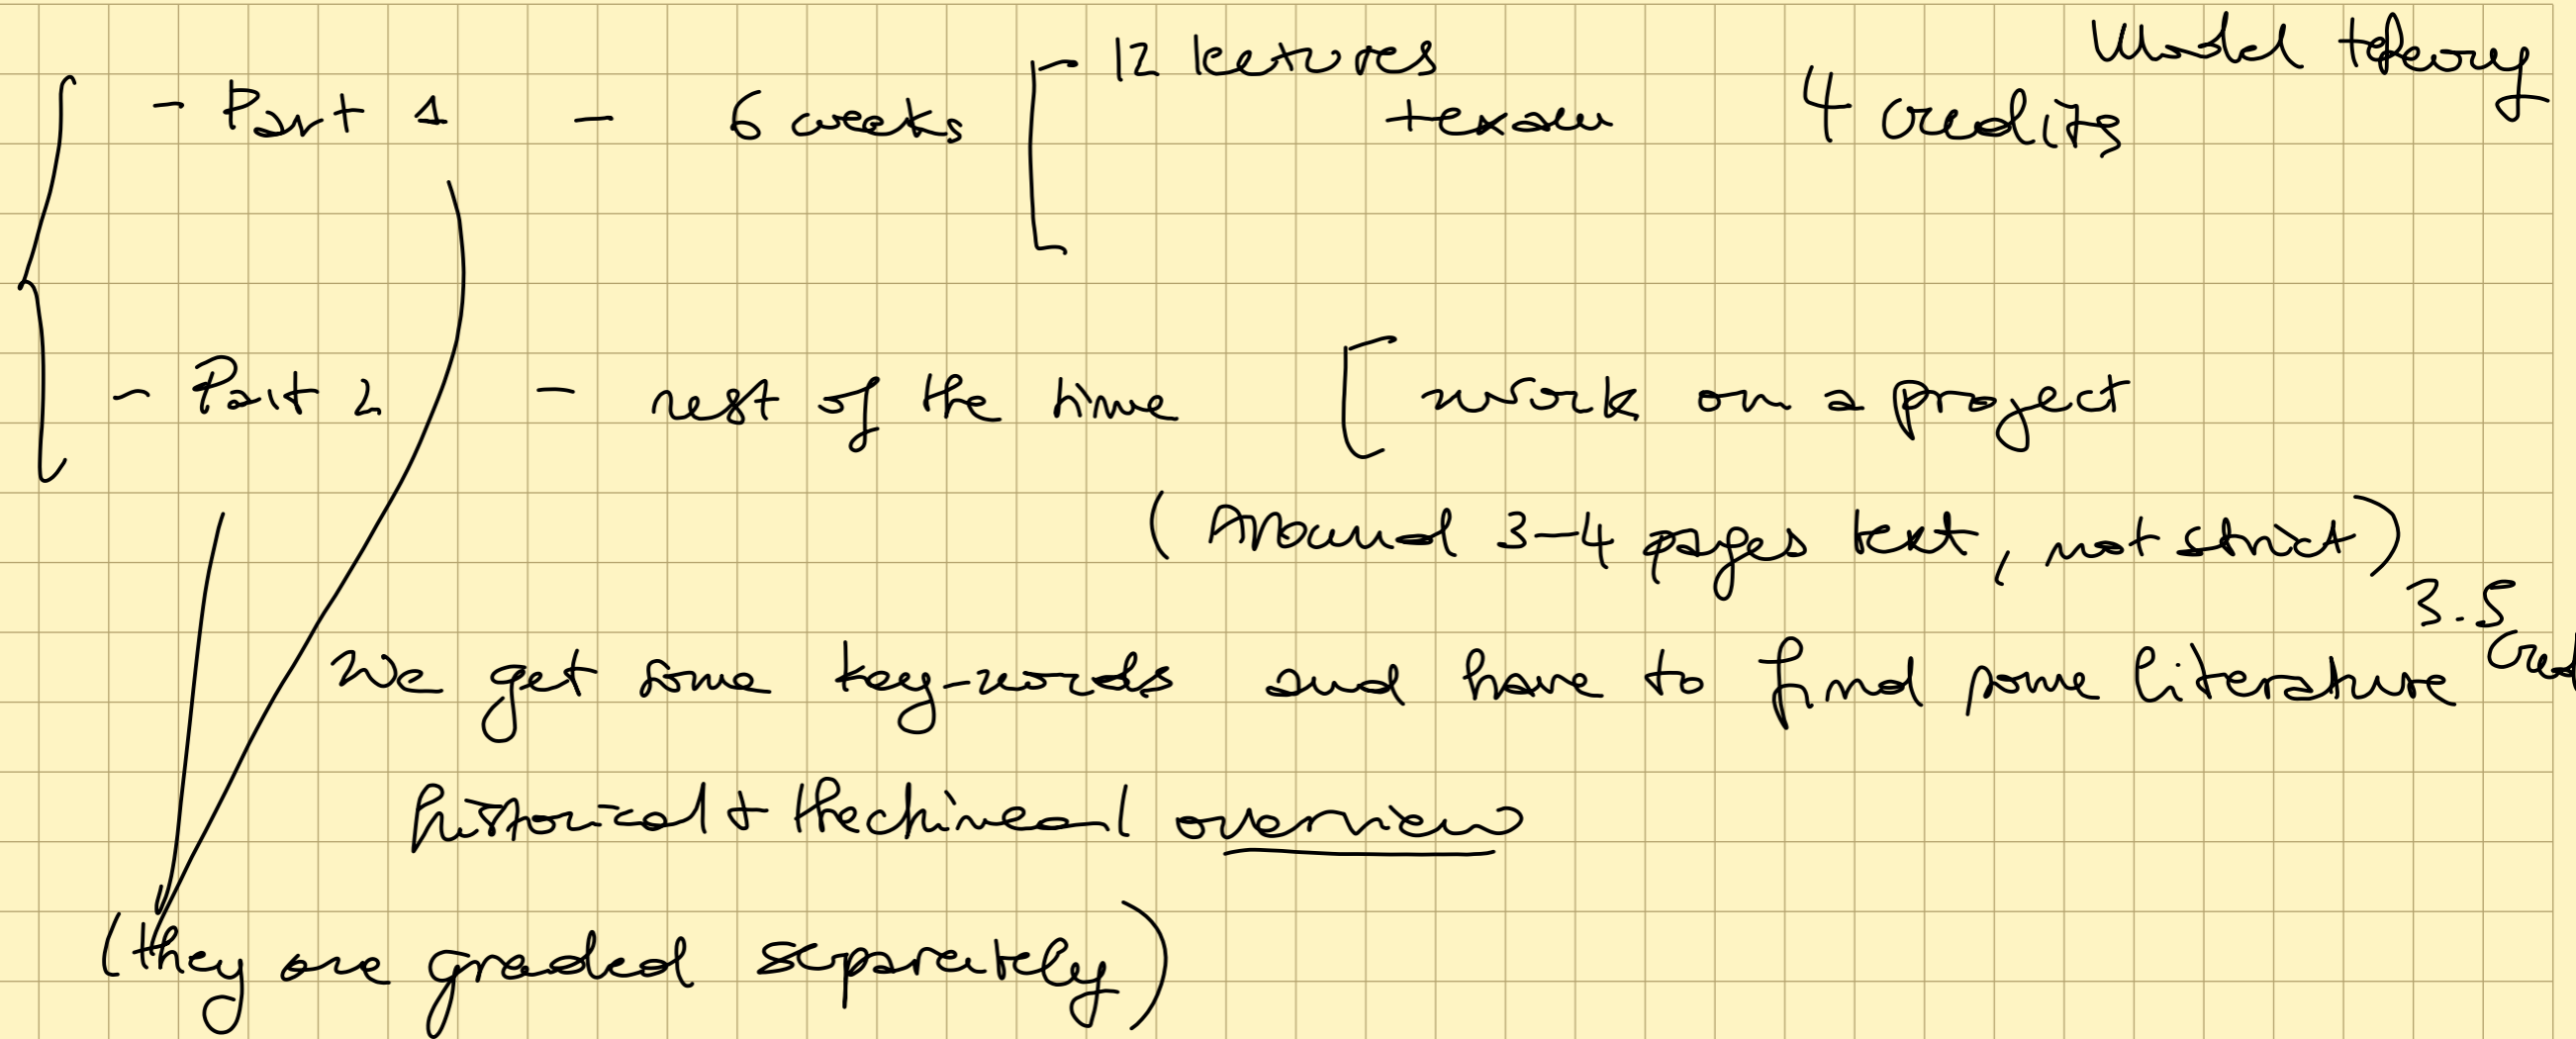 Model theory
- Part 1 - 6 weeks [ - 12 lectures
+ exam 4 credits
- Part 2 - rest of the time [ work on a project
(Around 3-4 pages text, not strict)
3.5
We get some key-words and have to find some literature
historical + thechincal overview
(they are graded separately)